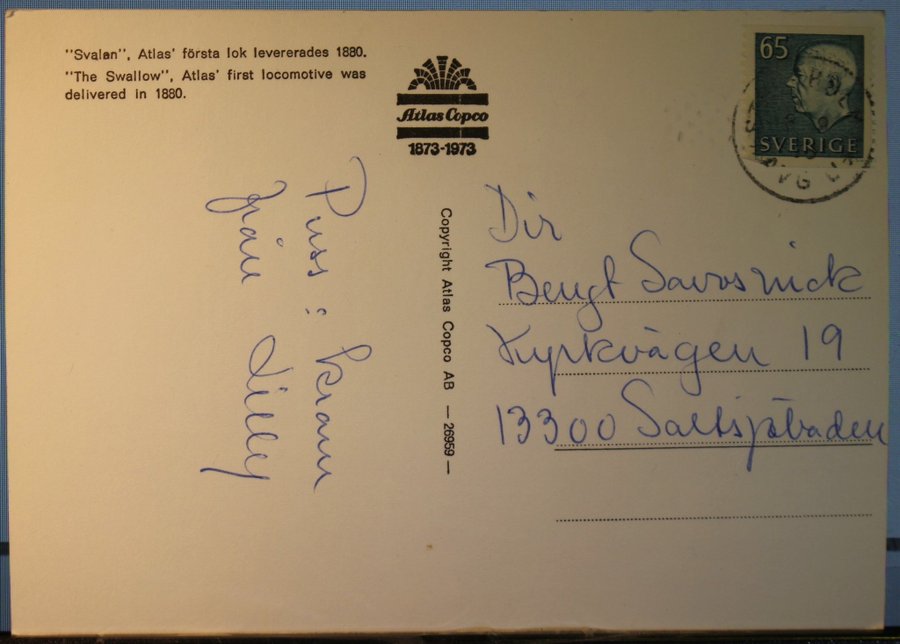 "Svalan", Atlas' första lok levererades 1880.
"The Swallow", Atlas' first locomotive was
delivered in 1880.
Atlas Copco
1873-1973
65
SVERIGE
Puss & kram
från Lilly
Copyright Atlas Copco AB — 26959 —
Dir
Bengt
Kyrkvägen 19
13300 Saltsjöbaden